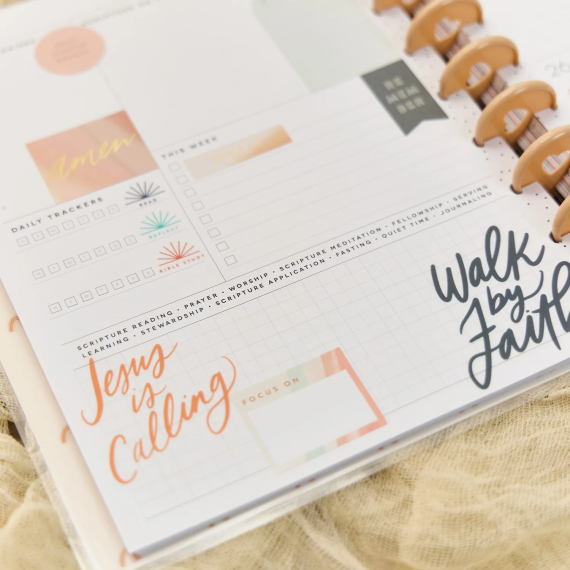 RE
MEM
BER
amen
THIS WEEK
DAILY TRACKERS
READ
REFLECT
BIBLE STUDY
SCRIPTURE READING • PRAYER • WORSHIP • SCRIPTURE MEDITATION • FELLOWSHIP • SERVING
LEARNING • STEWARDSHIP • SCRIPTURE APPLICATION • FASTING • QUIET TIME • JOURNALING
Walk
by
Faith
Jesus
is
Calling
FOCUS ON
26